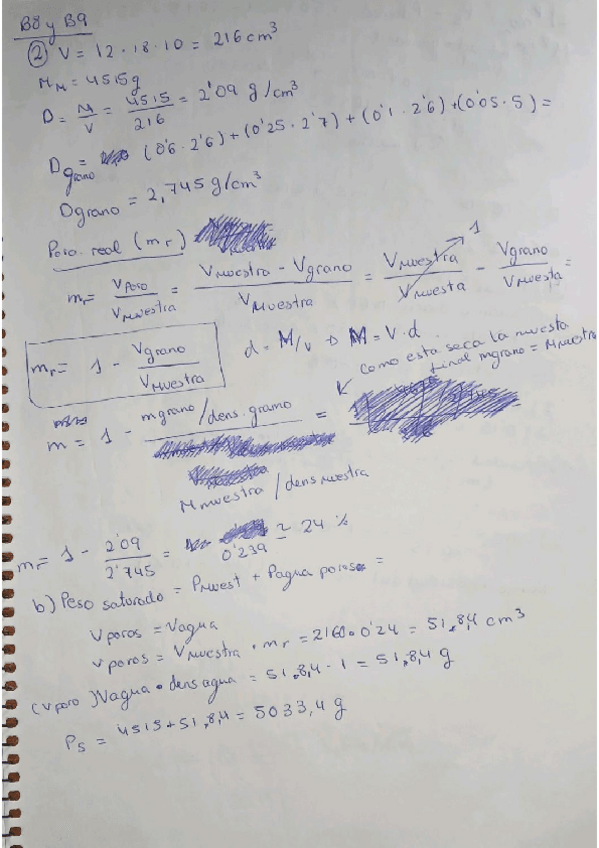 B8 y B9
② V = 12 · 18 · 10 = 216 cm³
M_M = 4515 g
D = M/V = 4515/216 = 2'09 g/cm³
D grano = (0'6 · 2'6) + (0'25 · 2'7) + (0'1 · 2'6) + (0'05 · 5) =
D grano = 2,745 g/cm³
Poro. real (m_r)
m_r = V poro / V muestra = (V muestra - V grano) / V muestra = V muestra / V muesta (1) - V grano / V muesta =
m_r = 1 - V grano / V muestra
d = M/V → M = V · d
como esta seca la muestra
final mgrano = M muestra
m = 1 - (m grano / dens. grano) / (M muestra / dens muestra) =
m_r = 1 - 2'09 / 2'745 = 0'239 ≃ 24 %
b) Peso saturado = P muest + P agua poros =
V poros = V agua
V poros = V muestra · m_r = 2160 · 0'24 = 51,8,4 cm³
(V poro) V agua · dens agua = 51,8,4 · 1 = 51,8,4 g
P_S = 4515 + 51,8,4 = 5033,4 g